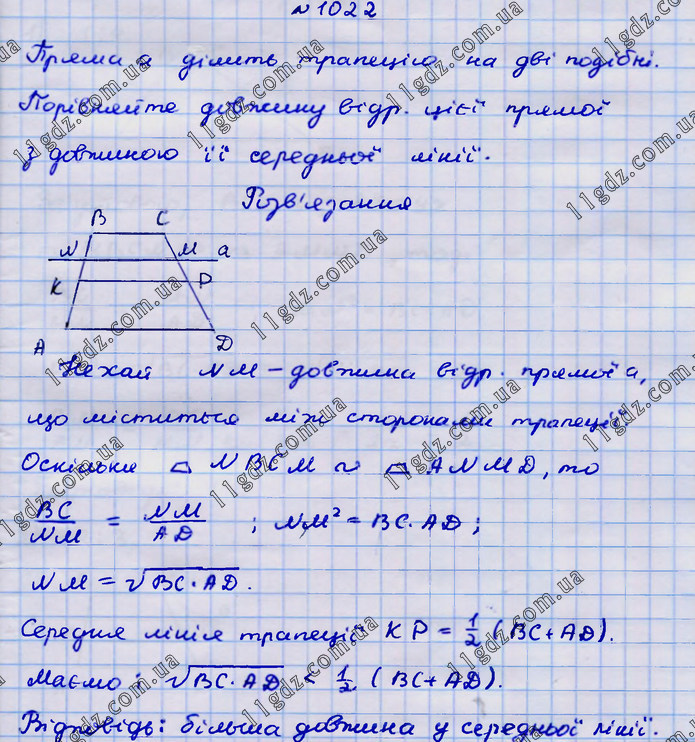 № 1022
Пряма а ділить трапецію на дві подібні.
Порівняйте довжину відр. цієї прямої
з довжиною її середньої лінії.
Розв'язання
B C
N M a
K P
A D
Нехай NM – довжина відр. прямої а,
що міститься між сторонами трапеції.
Оскільки ⏢ NBCM ~ ⏢ ANMD, то
BC/NM = NM/AD ; NM² = BC · AD ;
NM = √BC·AD.
Середня лінія трапеції KP = 1/2 (BC+AD).
Маємо: √BC·AD < 1/2 (BC+AD).
Відповідь: більша довжина у середньої лінії.
11gdz.com.ua